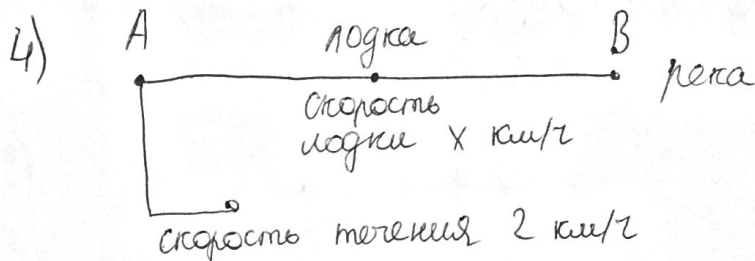 4) A лодка B река
скорость
лодки x км/ч
скорость течения 2 км/ч